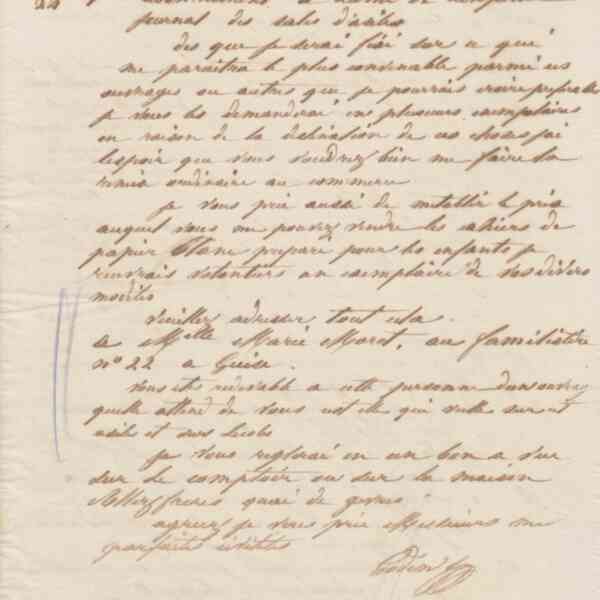 22
journal des salles d'asiles
des que je serai fixé sur ce qui
me paraitra le plus convenable parmi ces
ouvrages ou autres que je pourrais croire preferables
je vous les demanderai en plusieurs exemplaires
en raison de la destination de ces choses j'ai
l'espoir que vous voudrez bien me faire la
remise ordinaire au commerce
je vous prie aussi de m'etablir le prix
auquel vous me pouvez vendre les cahiers de
papier blanc preparé pour les enfants je
recevrais volontiers un exemplaire de vos divers
modèles
veuillez adresser tout cela
a Melle Marie Moret, au familistère
n° 22 a Guise.
vous etes redevable a cette personne d'un ouvrage
quelle attend de vous est elle qui veille sur cet
asile et nos écoles
je vous reglerai en un bon a vue
sur le comptoir ou sur la maison
freres quai de
agreez je vous prie Messieurs me
parfaites civilités
Godin